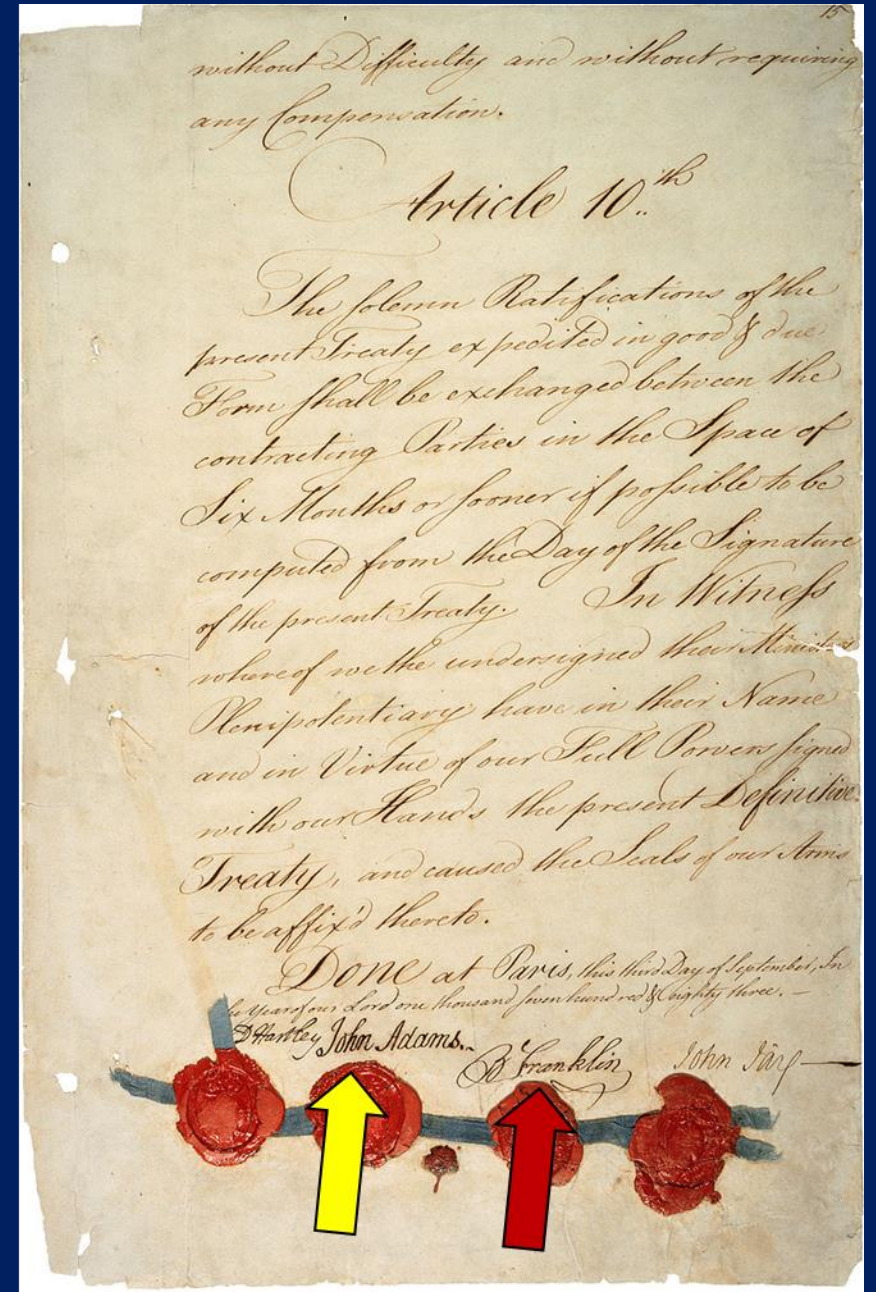 15
without Difficulty and without requiring
any Compensation.
Article 10..th
The solemn Ratifications of the
present Treaty expedited in good & due
Form shall be exchanged between the
contracting Parties in the Space of
Six Months or sooner if possible to be
computed from the Day of the Signature
of the present Treaty. In Witness
whereof we the undersigned their Ministers
Plenipotentiary have in their Name
and in Virtue of our Full Powers signed
with our Hands the present Definitive
Treaty, and caused the Seals of our Arms
to be affix'd thereto.
Done at Paris, this third Day of September, In
the Year of our Lord one thousand seven hundred & eighty three.—
D Hartley John Adams. B Franklin John Jay—